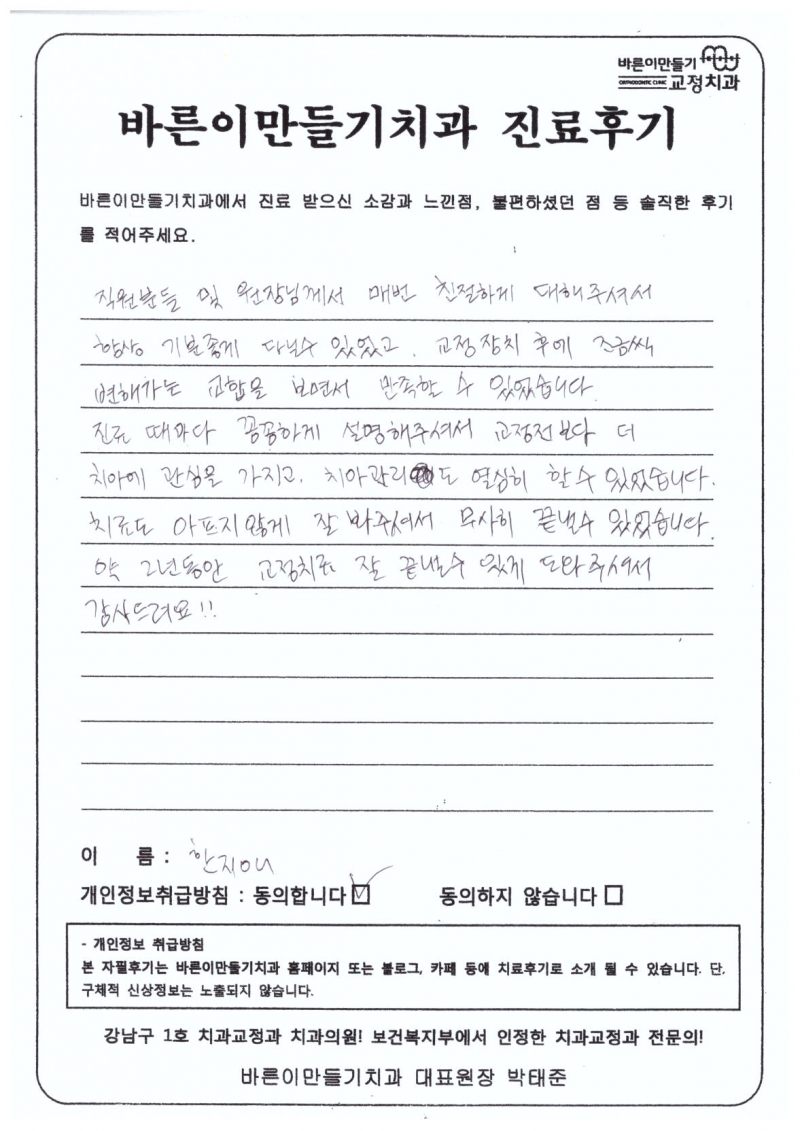 바른이만들기
ORTHODONTIC CLINIC 교정치과
바른이만들기치과 진료후기
바른이만들기치과에서 진료 받으신 소감과 느낀점, 불편하셨던 점 등 솔직한 후기
를 적어주세요.
직원분들 및 원장님께서 매번 친절하게 대해주셔서
항상 기분좋게 다닐수 있었고, 교정장치 후에 조금씩
변해가는 교합을 보면서 만족할 수 있었습니다.
진료 때마다 꼼꼼하게 설명해주셔서 교정전보다 더
치아에 관심을 가지고, 치아관리도 열심히 할 수 있었습니다.
치료도 아프지 않게 잘 봐주셔서 무사히 끝낼수 있었습니다.
약 2년동안 교정치료 잘 끝낼수 있게 도와주셔서
감사드려요!!
이 름 : 한지애
개인정보취급방침 : 동의합니다 동의하지 않습니다
- 개인정보 취급방침
본 자필후기는 바른이만들기치과 홈페이지 또는 블로그, 카페 등에 치료후기로 소개 될 수 있습니다. 단,
구체적 신상정보는 노출되지 않습니다.
강남구 1호 치과교정과 치과의원! 보건복지부에서 인정한 치과교정과 전문의!
바른이만들기치과 대표원장 박태준